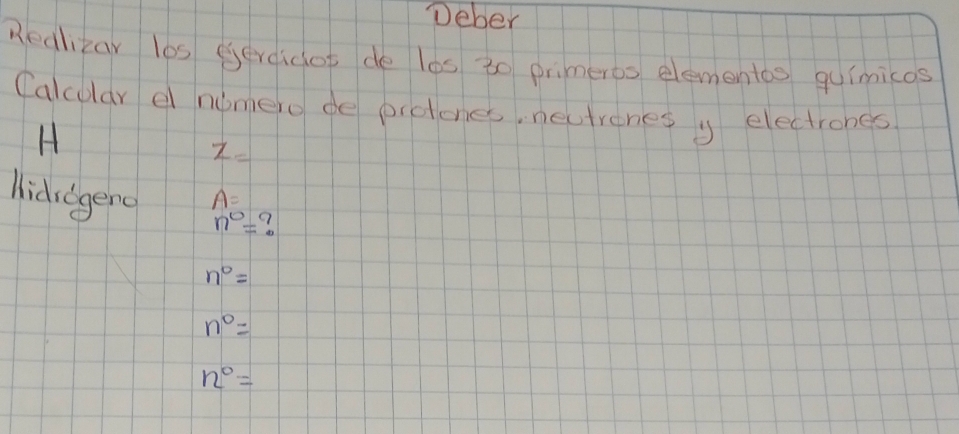 Deber
Realizar los ejercicios de los 30 primeros elementos químicos
Calcular el número de protones, neutrones y electrones.
H Z=
Hidrógeno A=
n°=?
n°=
n°=
n°=